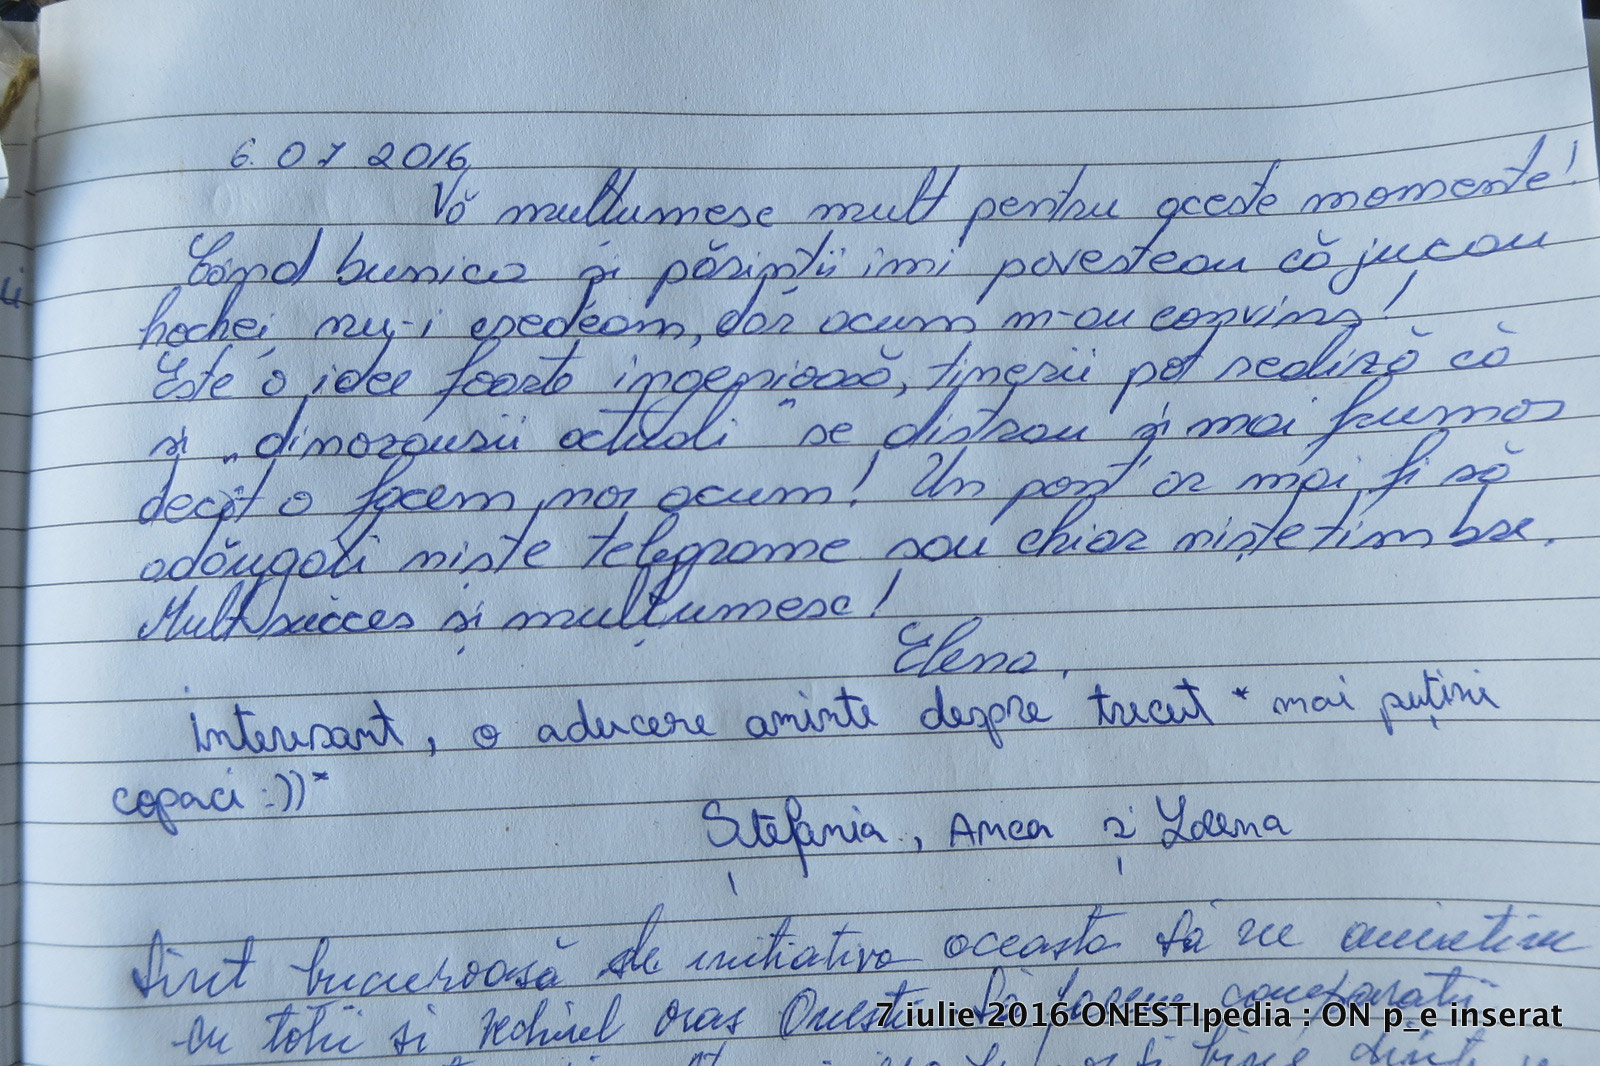 6.07 2016
Vă mulțumesc mult pentru aceste momente!
Când bunica și părinții îmi povesteau că jucau
hochei, nu-i credeam, dar acum m-au convins!
Este o idee foarte ingenioasă, tinerii pot realiza că
și „dinozaurii actuali" se distrau și mai frumos
decât o facem noi acum! Un pont ar mai fi să
adăugați niște telegrame sau chiar niște timbre.
Mult succes și mulțumesc!
Elena.
interesant, o aducere aminte despre trecut * mai puțini
copaci :))*
Ștefania, Anca și Ioana
Sînt bucuroasă de initiativa aceasta Să ne amintim
cu totii si vechiul oras Onesti Să facem comparatii
7 iulie 2016 ONESTIpedia : ON p_e inserat